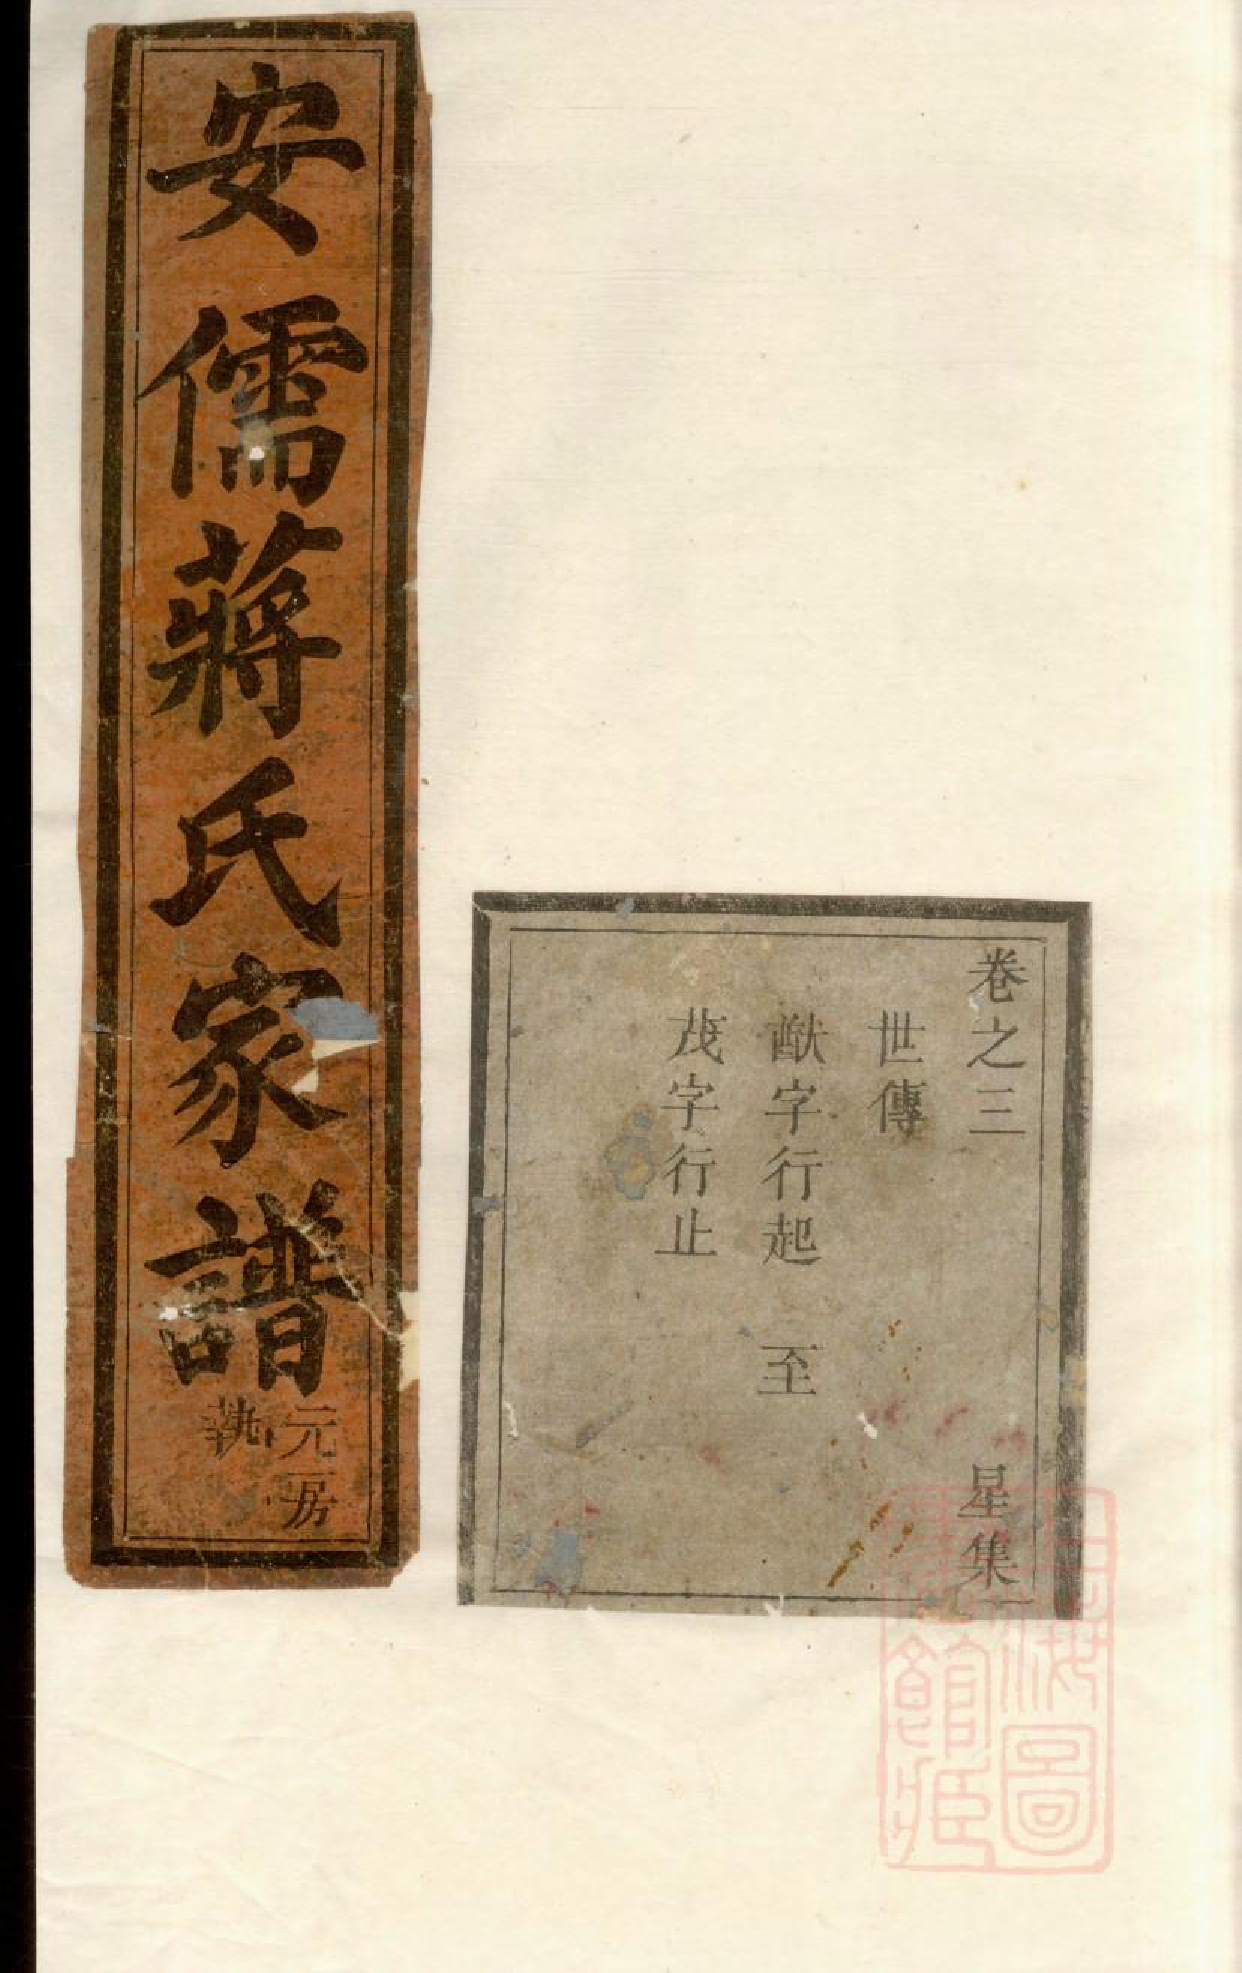 安儒蔣氏家譜
元房
執
卷之三 星集
世傳
猷字行起 至
茂字行止
上海圖書館藏